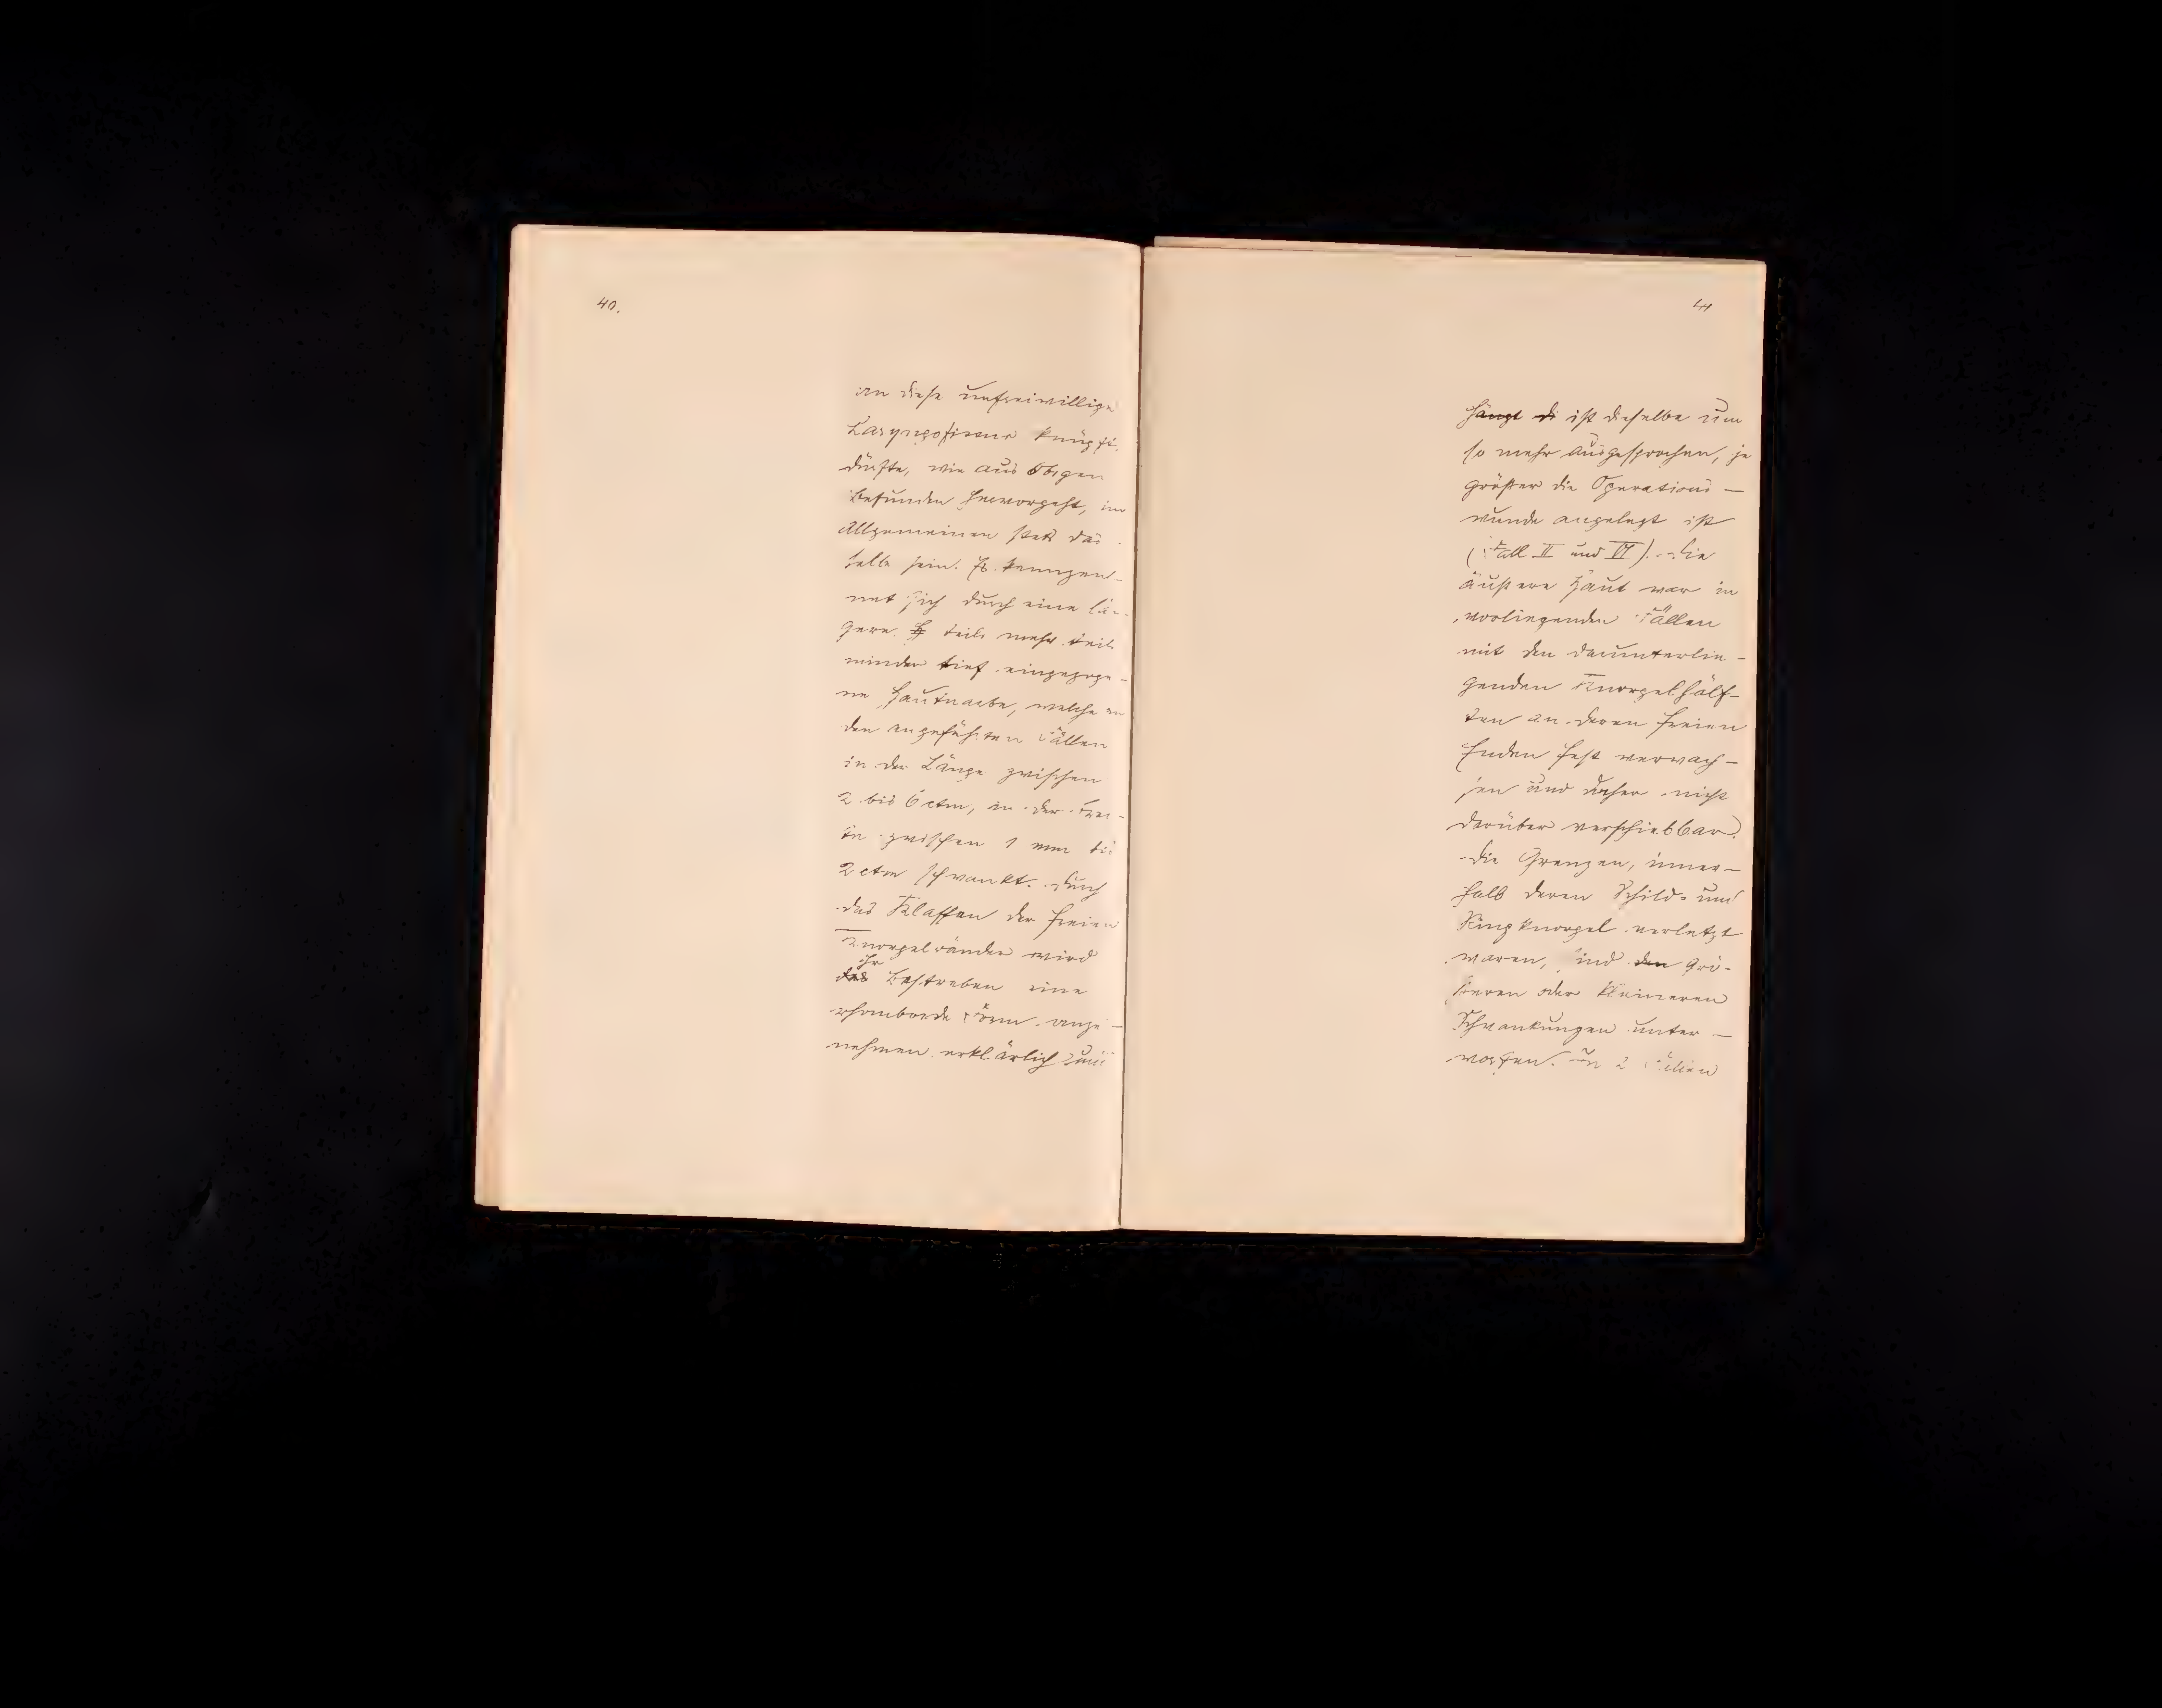 40.
an diese unfreiwillige
Laryngofissur knüpft,
dürfte, wie aus Obigen
Befunden hervorgeht, im
Allgemeinen stets das
selbe sein. Es kennzeich-
net sich durch eine län-
gere teils mehr teils
minder tief eingezoge-
ne Hautnarbe, welche in
den angeführten Fällen
in der Länge zwischen
2 bis 6 ctm, in der Brei-
te zwischen 1 mm bis
2 ctm schwankt. Durch
das Klaffen der freien
Knorpelränder wird
das ihr Bestreben eine
rhomboide Form anzu-
nehmen erklärlich und
41
hängt di ist dieselbe um
so mehr ausgesprochen, je
größer die Operations-
wunde angelegt ist
(Fall II und VI). Die
äußere Haut war in
vorliegenden Fällen
mit den darunterlie-
genden Knorpelhälf-
ten an deren freien
Enden fest verwach-
sen und daher nicht
darüber verschiebbar.
Die Grenzen, inner-
halb deren Schild- und
Ringknorpel verletzt
waren, sind den grö-
ßeren oder kleineren
Schwankungen unter-
worfen. In 2 Fällen